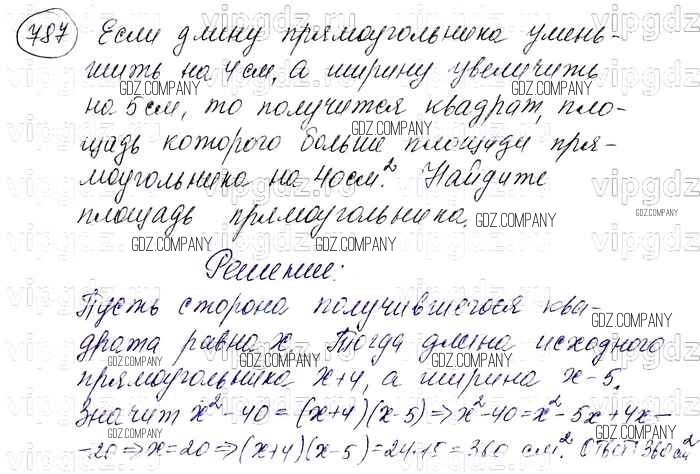 787 Если длину прямоугольника умень-
шить на 4 см, а ширину увеличить
на 5 см, то получится квадрат, пло-
щадь которого больше площади пря-
моугольника на 40 см². Найдите
площадь прямоугольника.
Решение:
Пусть сторона получившегося ква-
драта равна x. Тогда длина исходного
прямоугольника x+4, а ширина x-5.
Значит x²-40=(x+4)(x-5)=>x²-40=x²-5x+4x-
-20=>x=20=>(x+4)(x-5)=24·15=360 см². Ответ 360 см²